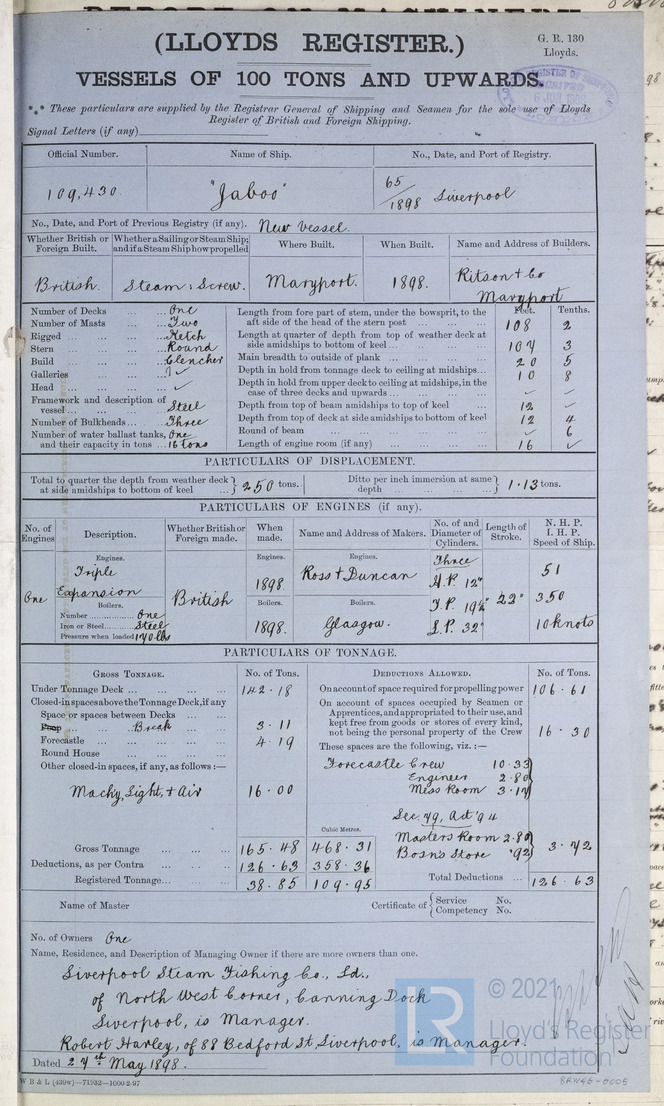 (LLOYDS REGISTER.)
G. R. 130
Lloyds.
VESSELS OF 100 TONS AND UPWARDS.
*** These particulars are supplied by the Registrar General of Shipping and Seamen for the sole use of Lloyds
Register of British and Foreign Shipping.
Signal Letters (if any)
Official Number. Name of Ship. No., Date, and Port of Registry.
109,430. "Jaboo" 65/1898 Liverpool
No., Date, and Port of Previous Registry (if any). New Vessel.
Whether British or Foreign Built. Whether a Sailing or Steam Ship; and if a Steam Ship how propelled Where Built. When Built. Name and Address of Builders.
British. Steam: Screw. Maryport. 1898. Ritson & Co
Maryport
Feet. Tenths.
Number of Decks One
Number of Masts Two
Rigged Ketch
Stern Round
Build Clencher
Galleries ✓
Head ✓
Framework and description of
vessel Steel
Number of Bulkheads Three
Number of water ballast tanks, One
and their capacity in tons 16 tons
Length from fore part of stem, under the bowsprit, to the
aft side of the head of the stern post 108 2
Length at quarter of depth from top of weather deck at
side amidships to bottom of keel 107 3
Main breadth to outside of plank 20 5
Depth in hold from tonnage deck to ceiling at midships 10 8
Depth in hold from upper deck to ceiling at midships, in the
case of three decks and upwards ✓ ✓
Depth from top of beam amidships to top of keel 12 ✓
Depth from top of deck at side amidships to bottom of keel 12 4
Round of beam ✓ 6
Length of engine room (if any) 16 ✓
PARTICULARS OF DISPLACEMENT.
Total to quarter the depth from weather deck
at side amidships to bottom of keel } 250 tons.
Ditto per inch immersion at same
depth } 1.13 tons.
PARTICULARS OF ENGINES (if any).
No. of Engines Description. Whether British or Foreign made. When made. Name and Address of Makers. No. of and Diameter of Cylinders. Length of Stroke. N. H. P. I. H. P. Speed of Ship.
Engines. Engines. Engines.
Triple Three 51
1898. Ross & Duncan H.P. 12"
One Expansion British I.P. 19½" 22" 350
Boilers. Boilers. Boilers.
Number One
Iron or Steel Steel 1898. Glasgow. L.P. 32" 10 knots
Pressure when loaded 170 lbs
PARTICULARS OF TONNAGE.
GROSS TONNAGE. No. of Tons. DEDUCTIONS ALLOWED. No. of Tons.
Under Tonnage Deck 142.18
Closed-in spaces above the Tonnage Deck, if any
Space or spaces between Decks
Poop Break 3.11
Forecastle 4.19
Round House
Other closed-in spaces, if any, as follows:—
Machy, Light, & Air 16.00
Cubic Metres.
Gross Tonnage 165.48 468.31
Deductions, as per Contra 126.63 358.36
Registered Tonnage 38.85 109.95
On account of space required for propelling power 106.61
On account of spaces occupied by Seamen or
Apprentices, and appropriated to their use, and
kept free from goods or stores of every kind,
not being the personal property of the Crew 16.30
These spaces are the following, viz.:—
Forecastle Crew 10.33
Engineer 2.80
Mess Room 3.17
Sec. 79, Act '94
Masters Room 2.80
Bosn's Store .92 3.72
Total Deductions 126.63
Name of Master
Certificate of { Service No.
Competency No.
No. of Owners One
Name, Residence, and Description of Managing Owner if there are more owners than one.
Liverpool Steam Fishing Co., Ld.,
of North West Corner, Canning Dock
Liverpool, is Manager.
Robert Harley, of 88 Bedford St, Liverpool, is Manager.
Dated 27th May 1898.
W B & L (439w)—71932—1000-2-97
LR
© 2021
Lloyd's Register
Foundation
BRW46-0005